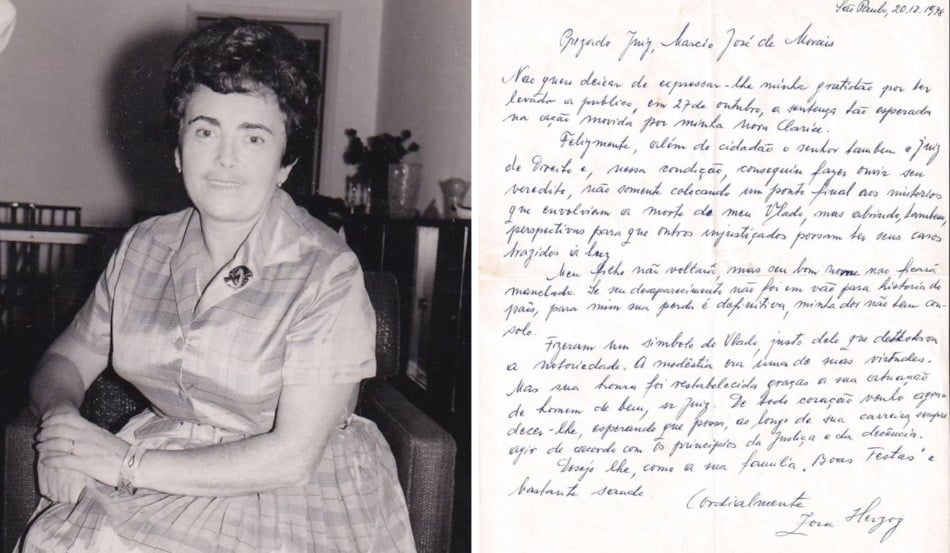 São Paulo, 20.12.1978
Prezado Juiz, Marcio José de Morais
Não quero deixar de expressar-lhe minha gratidão por ter
levado a publico, em 27 de outubro, a sentença tão esperada
na ação movida por minha nora Clarice.
Felizmente, além de cidadão o senhor tambem é Juiz
de Direito e, nessa condição, conseguiu fazer ouvir seu
veredito, não somente colocando um ponto final aos misterios
que envolviam a morte do meu Vlado, mas abrindo tambem,
perspectivas para que outros injustiçados possam ter seus casos
trazidos à luz.
Meu filho não voltará, mas seu bom nome nao ficará
manchado. Se seu desaparecimento não foi em vão para historia do
país, para mim sua perda é definitiva, minha dor não tem con-
solo.
Fizeram um simbolo do Vlado, justo dele que detestava
a notoriedade. A modéstia era uma de suas virtudes.
Mas sua honra foi restabelecida graças a sua atuação
de homem de bem, sr Juiz. De todo coração venho agra-
decer-lhe, esperando que possa, ao longo de sua carreira, sempre
agir de acordo com os principios da Justiça e da decência.
Desejo lhe, como a sua familia, "Boas Festas" e
bastante saude.
Cordialmente
Zora Herzog